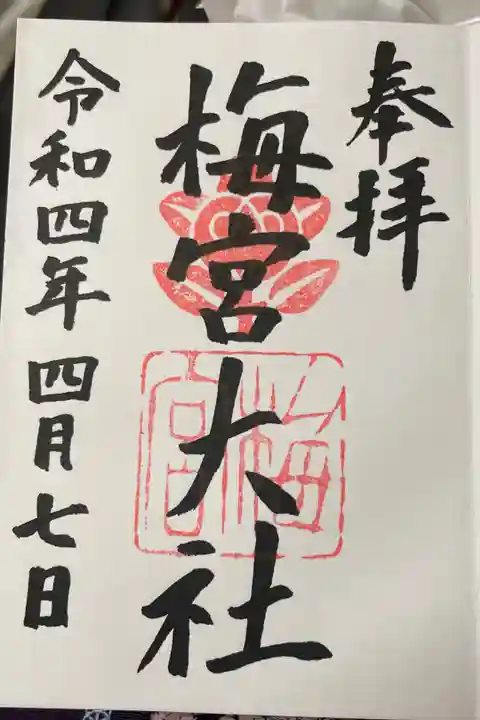 奉拝
梅宮大社
令和四年四月七日
梅宮